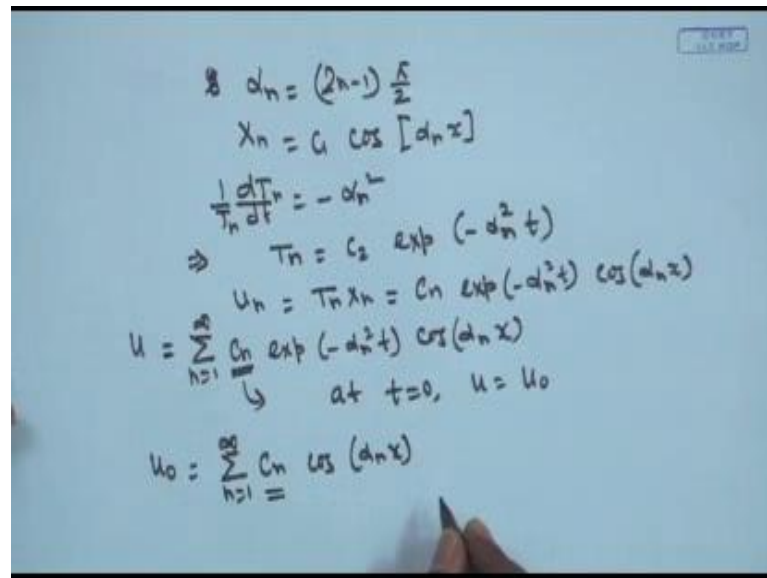 αn = (2n-1) π/2
Xn = C1 cos [αn x]
1/Tn dTn/dt = - αn²
⇒ Tn = C2 exp (-αn² t)
un = Tn Xn = Cn exp(-αn² t) cos(αn x)
u = ∑ n=1 ∞ Cn exp (-αn² t) cos(αn x)
↳ at t=0, u = u0
u0 = ∑ n=1 ∞ Cn cos (αn x)